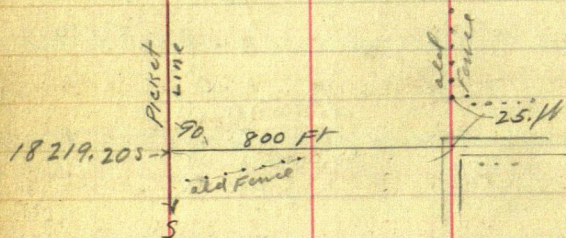 Picket
Line
old
Fence
90
800 Ft
25. ft
18219.20S
old Fence
S